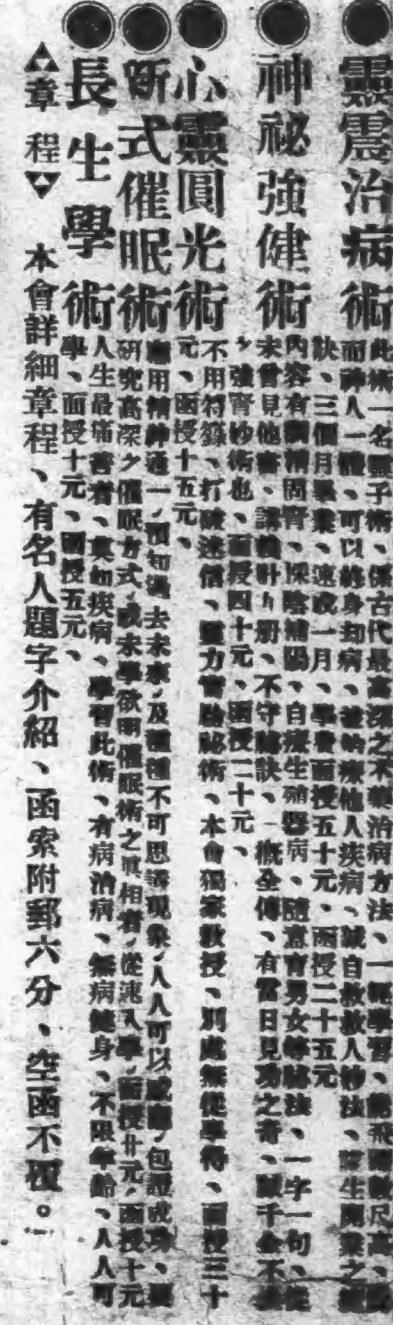 靈震治病術
此術一名靈子術、係古代最高深之不藥治病方法、一經學習、能飛騰數尺高、
而神人一體、可以修身却病、並治療他人疾病、誠自救救人妙法、
訣、三個月畢業、速成一月、學費面授五十元、函授二十五元
神祕強健術
內容有調精固腎、採陰補陽、自療生殖器病、隨意育男女等祕法、一字一句、
未曾見他書、講義計八册、不守祕訣、一概全傳、有當日見功之奇、
強腎妙術也、面授四十元、函授二十元、
心靈圓光術
不用符籙、打破迷信、靈力實驗祕術、本會獨家敎授、別處無從學得、面授三十
元、函授十五元、
新式催眠術
應用精神通一、預知過去未來、及種種不可思議現象、人人可以感應、包證成功、要
研究高深之催眠方式、或未學欲明催眠術之眞相者、從速入學、面授廿元、函授十元
長生學術
人生最痛苦者、莫如疾病、學習此術、有病治病、無病健身、不限年齡、人人可
學、面授十元、函授五元、
章程 本會詳細章程、有名人題字介紹、函索附郵六分、空函不覆。